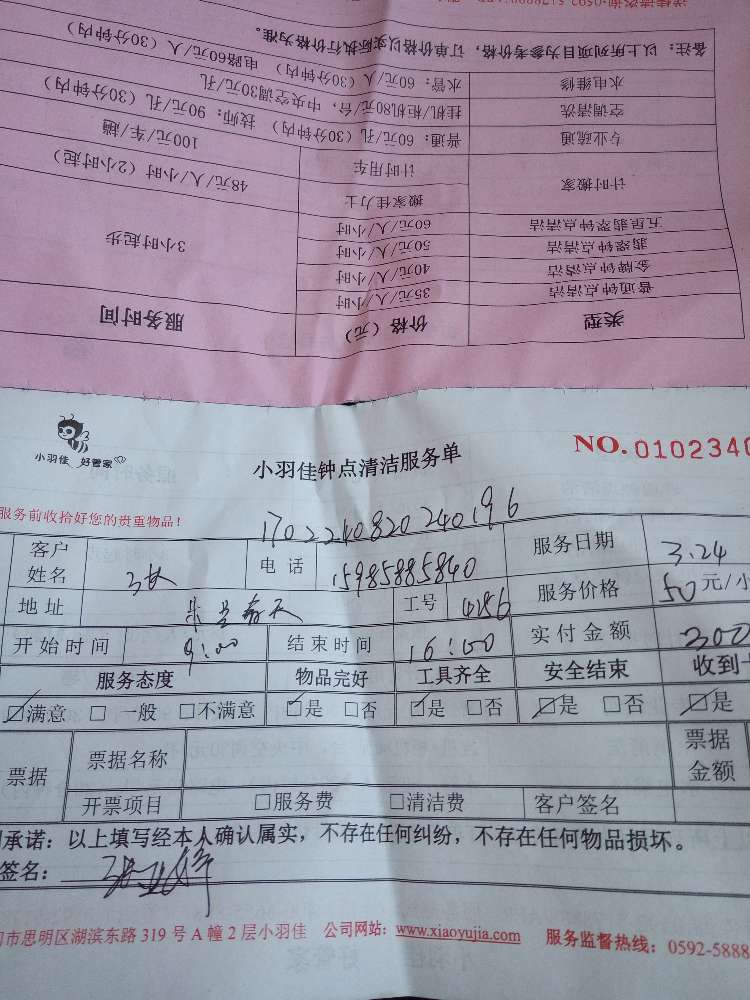 类型 价格（元） 服务时间
普通钟点清洁 35元/人/小时
金牌钟点清洁 40元/人/小时
翡翠钟点清洁 50元/人/小时 3小时起步
五星翡翠钟点清洁 60元/人/小时
计时搬家 搬家佳力士 48元/人/小时（2小时起）
计时用车 100元/车/趟
专业疏通 普通：60元/孔（30分钟内） 技师：90元/孔（30分钟内）
空调清洗 挂机/柜机80元/台，中央空调30元/孔
水电维修 水管：60元/人（30分钟内） 电路60元/人（30分钟内）
备注：以上所列项目为参考价格，订单价格以实际执行价格为准。
小羽佳 好管家
小羽佳钟点清洁服务单
NO.0102340
服务前收拾好您的贵重物品！
1702240820240196
客户姓名 电话 15985885840 服务日期 3.24
地址 工号 服务价格 50元/小
开始时间 9:00 结束时间 16:00 实付金额 300
服务态度 物品完好 工具齐全 安全结束 收到
☑满意 □一般 □不满意 ☑是 □否 ☑是 □否 ☑是 □否 ☑是
票据 票据名称 票据金额
开票项目 □服务费 □清洁费 客户签名
承诺：以上填写经本人确认属实，不存在任何纠纷，不存在任何物品损坏。
签名：
市思明区湖滨东路319号A幢2层小羽佳 公司网站：www.xjaoyujia.com 服务监督热线：0592-5888